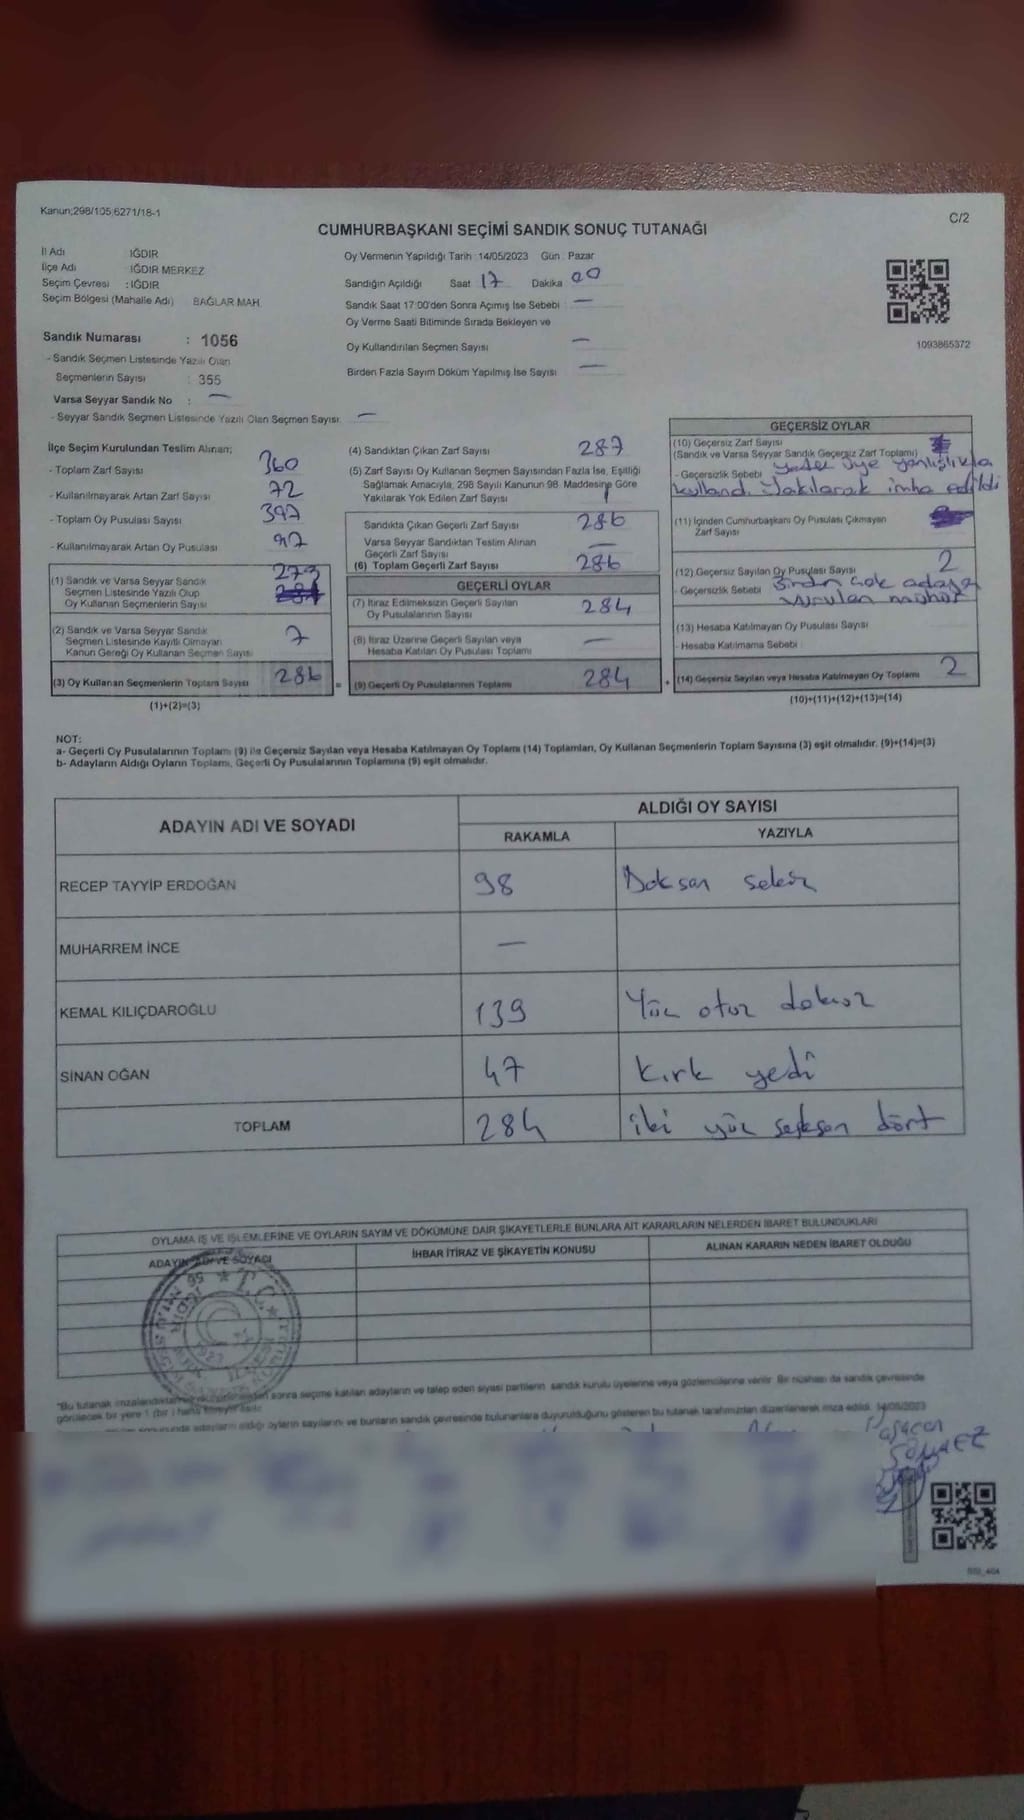 Kanun;298/105,6271/18-1
C/2
CUMHURBAŞKANI SEÇİMİ SANDIK SONUÇ TUTANAĞI
İl Adı IĞDIR
İlçe Adı :IĞDIR MERKEZ
Seçim Çevresi :IĞDIR
Seçim Bölgesi (Mahalle Adı) BAĞLAR MAH.
Sandık Numarası : 1056
- Sandık Seçmen Listesinde Yazılı Olan
Seçmenlerin Sayısı : 355
Varsa Seyyar Sandık No : —
- Seyyar Sandık Seçmen Listesinde Yazılı Olan Seçmen Sayısı: —
Oy Vermenin Yapıldığı Tarih :14/05/2023 Gün : Pazar
Sandığın Açıldığı Saat 17 Dakika 00
Sandık Saat 17:00'den Sonra Açımış İse Sebebi : —
Oy Verme Saati Bitiminde Sırada Bekleyen ve
Oy Kullandırılan Seçmen Sayısı —
Birden Fazla Sayım Döküm Yapılmış İse Sayısı : —
1093865372
İlçe Seçim Kurulundan Teslim Alınan;
- Toplam Zarf Sayısı 360
- Kullanılmayarak Artan Zarf Sayısı 72
- Toplam Oy Pusulası Sayısı 397
- Kullanılmayarak Artan Oy Pusulası 97
(1) Sandık ve Varsa Seyyar Sandık 273
Seçmen Listesinde Yazılı Olup
Oy Kullanan Seçmenlerin Sayısı
(2) Sandık ve Varsa Seyyar Sandık
Seçmen Listesinde Kayıtlı Olmayan 7
Kanun Gereği Oy Kullanan Seçmen Sayısı
(3) Oy Kullanan Seçmenlerin Toplam Sayısı 286 =
(1)+(2)=(3)
(4) Sandıktan Çıkan Zarf Sayısı 287
(5) Zarf Sayısı Oy Kullanan Seçmen Sayısından Fazla İse, Eşitliği
Sağlamak Amacıyla, 298 Sayılı Kanunun 98. Maddesine Göre
Yakılarak Yok Edilen Zarf Sayısı 1
Sandıkta Çıkan Geçerli Zarf Sayısı 286
Varsa Seyyar Sandıktan Teslim Alınan
Geçerli Zarf Sayısı —
(6) Toplam Geçerli Zarf Sayısı 286
GEÇERLİ OYLAR
(7) İtiraz Edilmeksizin Geçerli Sayılan 284
Oy Pusulalarının Sayısı
(8) İtiraz Üzerine Geçerli Sayılan veya —
Hesaba Katılan Oy Pusulası Toplamı
(9) Geçerli Oy Pusulalarının Toplamı 284 +
GEÇERSİZ OYLAR
(10) Geçersiz Zarf Sayısı
(Sandık ve Varsa Seyyar Sandık Geçersiz Zarf Toplamı)
- Geçersizlik Sebebi yedek üye yanlışlıkla
kullandı. Yakılarak imha edildi
(11) İçinden Cumhurbaşkanı Oy Pusulası Çıkmayan
Zarf Sayısı
(12) Geçersiz Sayılan Oy Pusulası Sayısı 2
- Geçersizlik Sebebi Birden çok adaya
vurulan mühür
(13) Hesaba Katılmayan Oy Pusulası Sayısı
- Hesaba Katılmama Sebebi :
(14) Geçersiz Sayılan veya Hesaba Katılmayan Oy Toplamı 2
(10)+(11)+(12)+(13)=(14)
NOT:
a- Geçerli Oy Pusulalarının Toplamı (9) ile Geçersiz Sayılan veya Hesaba Katılmayan Oy Toplamı (14) Toplamları, Oy Kullanan Seçmenlerin Toplam Sayısına (3) eşit olmalıdır. (9)+(14)=(3)
b- Adayların Aldığı Oyların Toplamı, Geçerli Oy Pusulalarının Toplamına (9) eşit olmalıdır.
ADAYIN ADI VE SOYADI ALDIĞI OY SAYISI
RAKAMLA YAZIYLA
RECEP TAYYİP ERDOĞAN 98 Doksan sekiz
MUHARREM İNCE —
KEMAL KILIÇDAROĞLU 139 Yüz otuz dokuz
SİNAN OĞAN 47 Kırk yedi
TOPLAM 284 iki yüz seksen dört
OYLAMA İŞ VE İŞLEMLERİNE VE OYLARIN SAYIM VE DÖKÜMÜNE DAİR ŞİKAYETLERLE BUNLARA AİT KARARLARIN NELERDEN İBARET BULUNDUKLARI
ADAYIN ADI VE SOYADI İHBAR İTİRAZ VE ŞİKAYETİN KONUSU ALINAN KARARIN NEDEN İBARET OLDUĞU
T.C.
IĞDIR
"Bu tutanak imzalandıktan sonra seçime katılan adayların ve talep eden siyasi partilerin sandık kurulu üyelerine veya gözlemcilerine verilir. Bir nüshası da sandık çevresinde
görülecek bir yere 1 (bir) hafta
adayların aldığı oyların sayılarını ve bunların sandık çevresinde bulunanlara duyurulduğunu gösteren bu tutanak tarafımızdan düzenlenerek imza edildi. 14/05/2023
SÖNMEZ